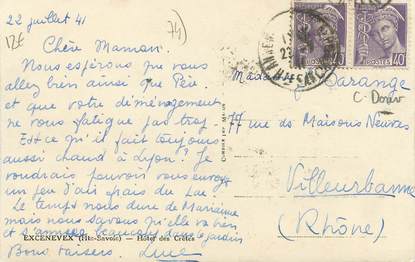 22 juillet 41
12€
74)
Chère Maman.
Nous espérons que vous
allez bien ainsi que Père
et que votre déménagement
ne vous fatigue pas trop.
Est ce qu'il fait toujours
aussi chaud à Lyon? Je
voudrais pouvoir vous envoyer
un peu d'air frais du Lac.
Le temps nous dure de Marianne
mais nous savons qu'elle va bien
et s'amuse beaucoup dans le jardin
EXCENEVEX (Hte-Savoie) — Hôtel des Crêtes
Bons baisers. Luce
POSTES 40
POSTES 40
Madame Sarange
C. Donier
77 rue de Maisons Neuves
Villeurbanne
(Rhône)